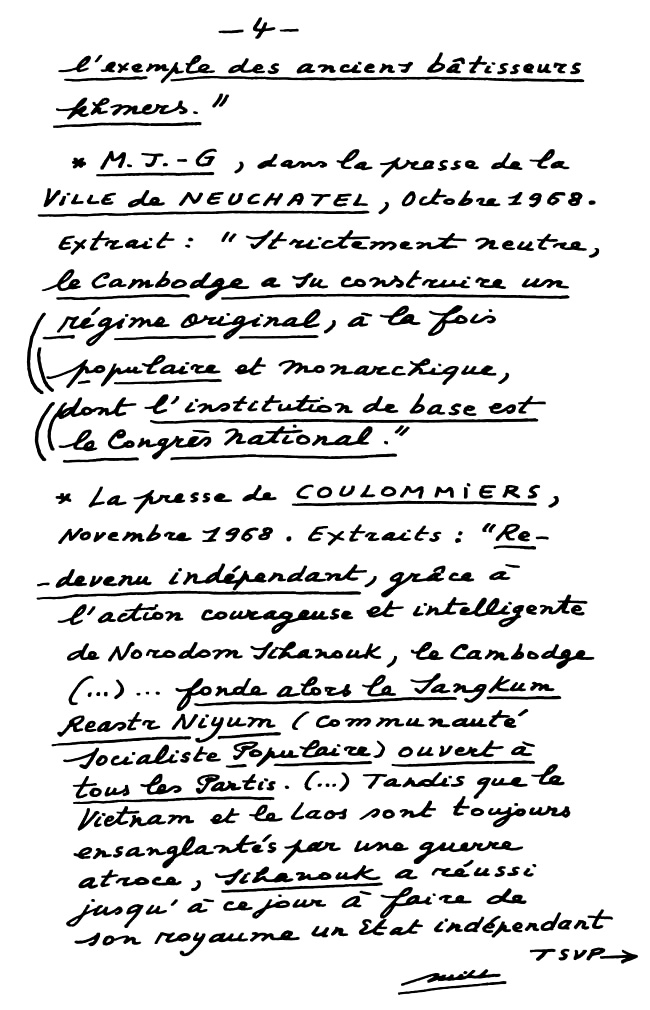 — 4 —
l'exemple des anciens bâtisseurs
khmers."
* M. J.-G , dans la presse de la
VILLE de NEUCHATEL, Octobre 1968.
Extrait : "Strictement neutre,
le Cambodge a su construire un
régime original, à la fois
populaire et monarchique,
dont l'institution de base est
le Congrès National."
* La presse de COULOMMIERS,
Novembre 1968. Extraits : "Re-
-devenu indépendant, grâce à
l'action courageuse et intelligente
de Norodom Sihanouk, le Cambodge
(...) ... fonde alors le Sangkum
Reastr Niyum (Communauté
Socialiste Populaire) ouvert à
tous les Partis. (...) Tandis que le
Vietnam et le Laos sont toujours
ensanglantés par une guerre
atroce, Sihanouk a réussi
jusqu'à ce jour à faire de
son royaume un Etat indépendant
TSVP→